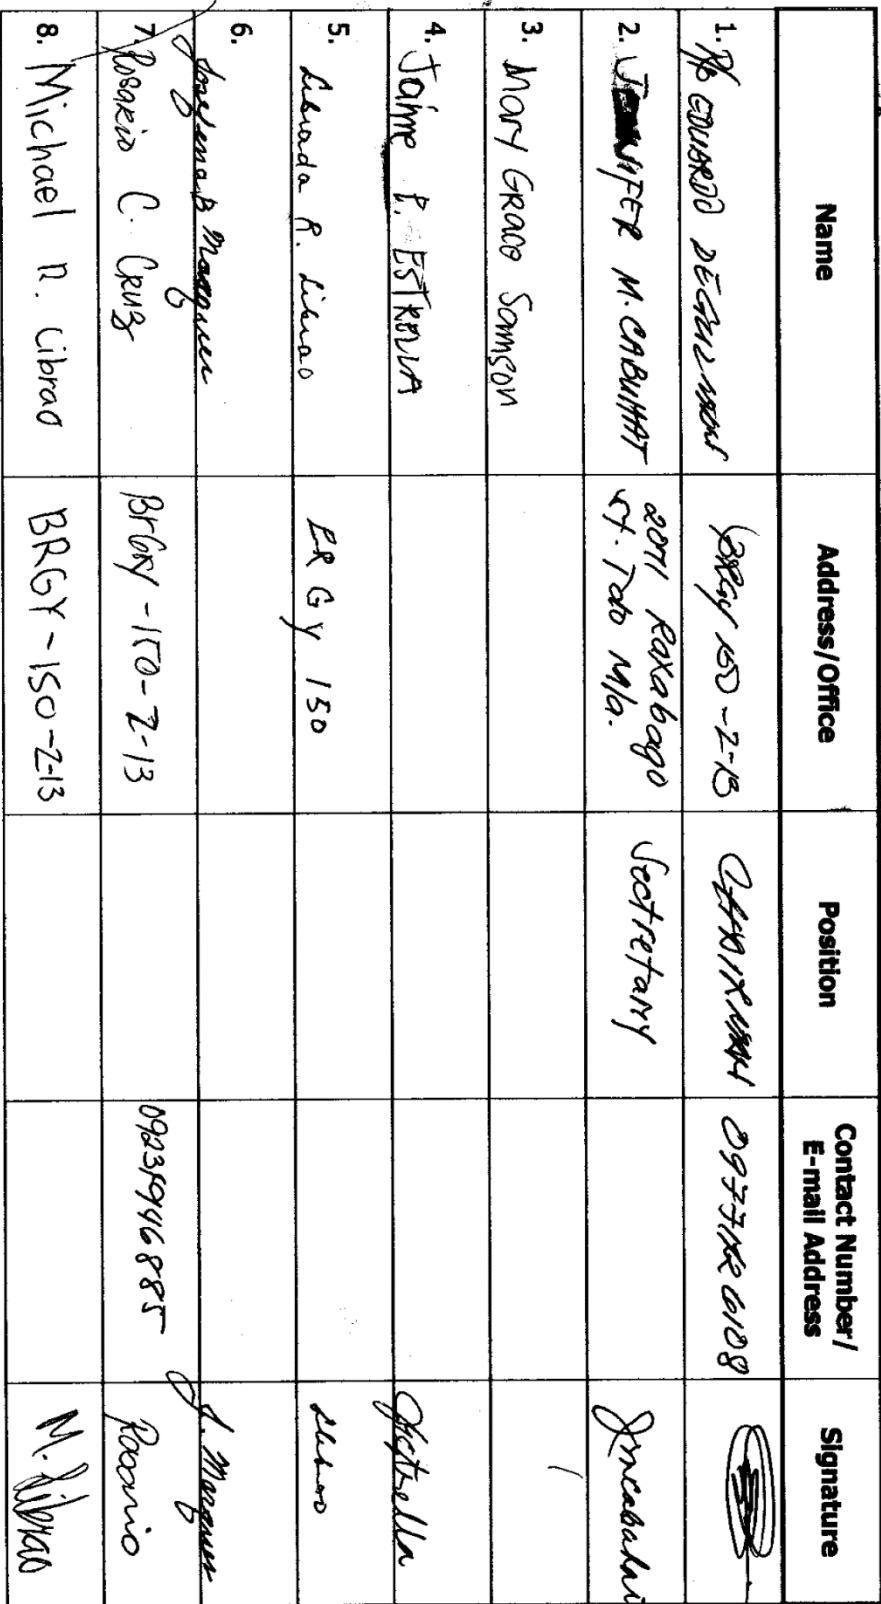 Name Address/Office Position Contact Number/ E-mail Address Signature
1. P/B EDUARDO DEGUZMAN BRGY 150-Z-13 CHAIRMAN
2. JENNIFER M. CABUHAT 2071 Raxabago St. Tdo M/a. Sectretary
3. Mary Grace Samson
4. Jaime P. ESTRELLA
5. Librada R. Librao BRGY 150
6. Josefina B Marquez J. Marquez
7. Rosario C. Cruz BrGy-150-Z-13 Rosario
8. Michael R. Librao BRGY-150-Z-13 M. Librao